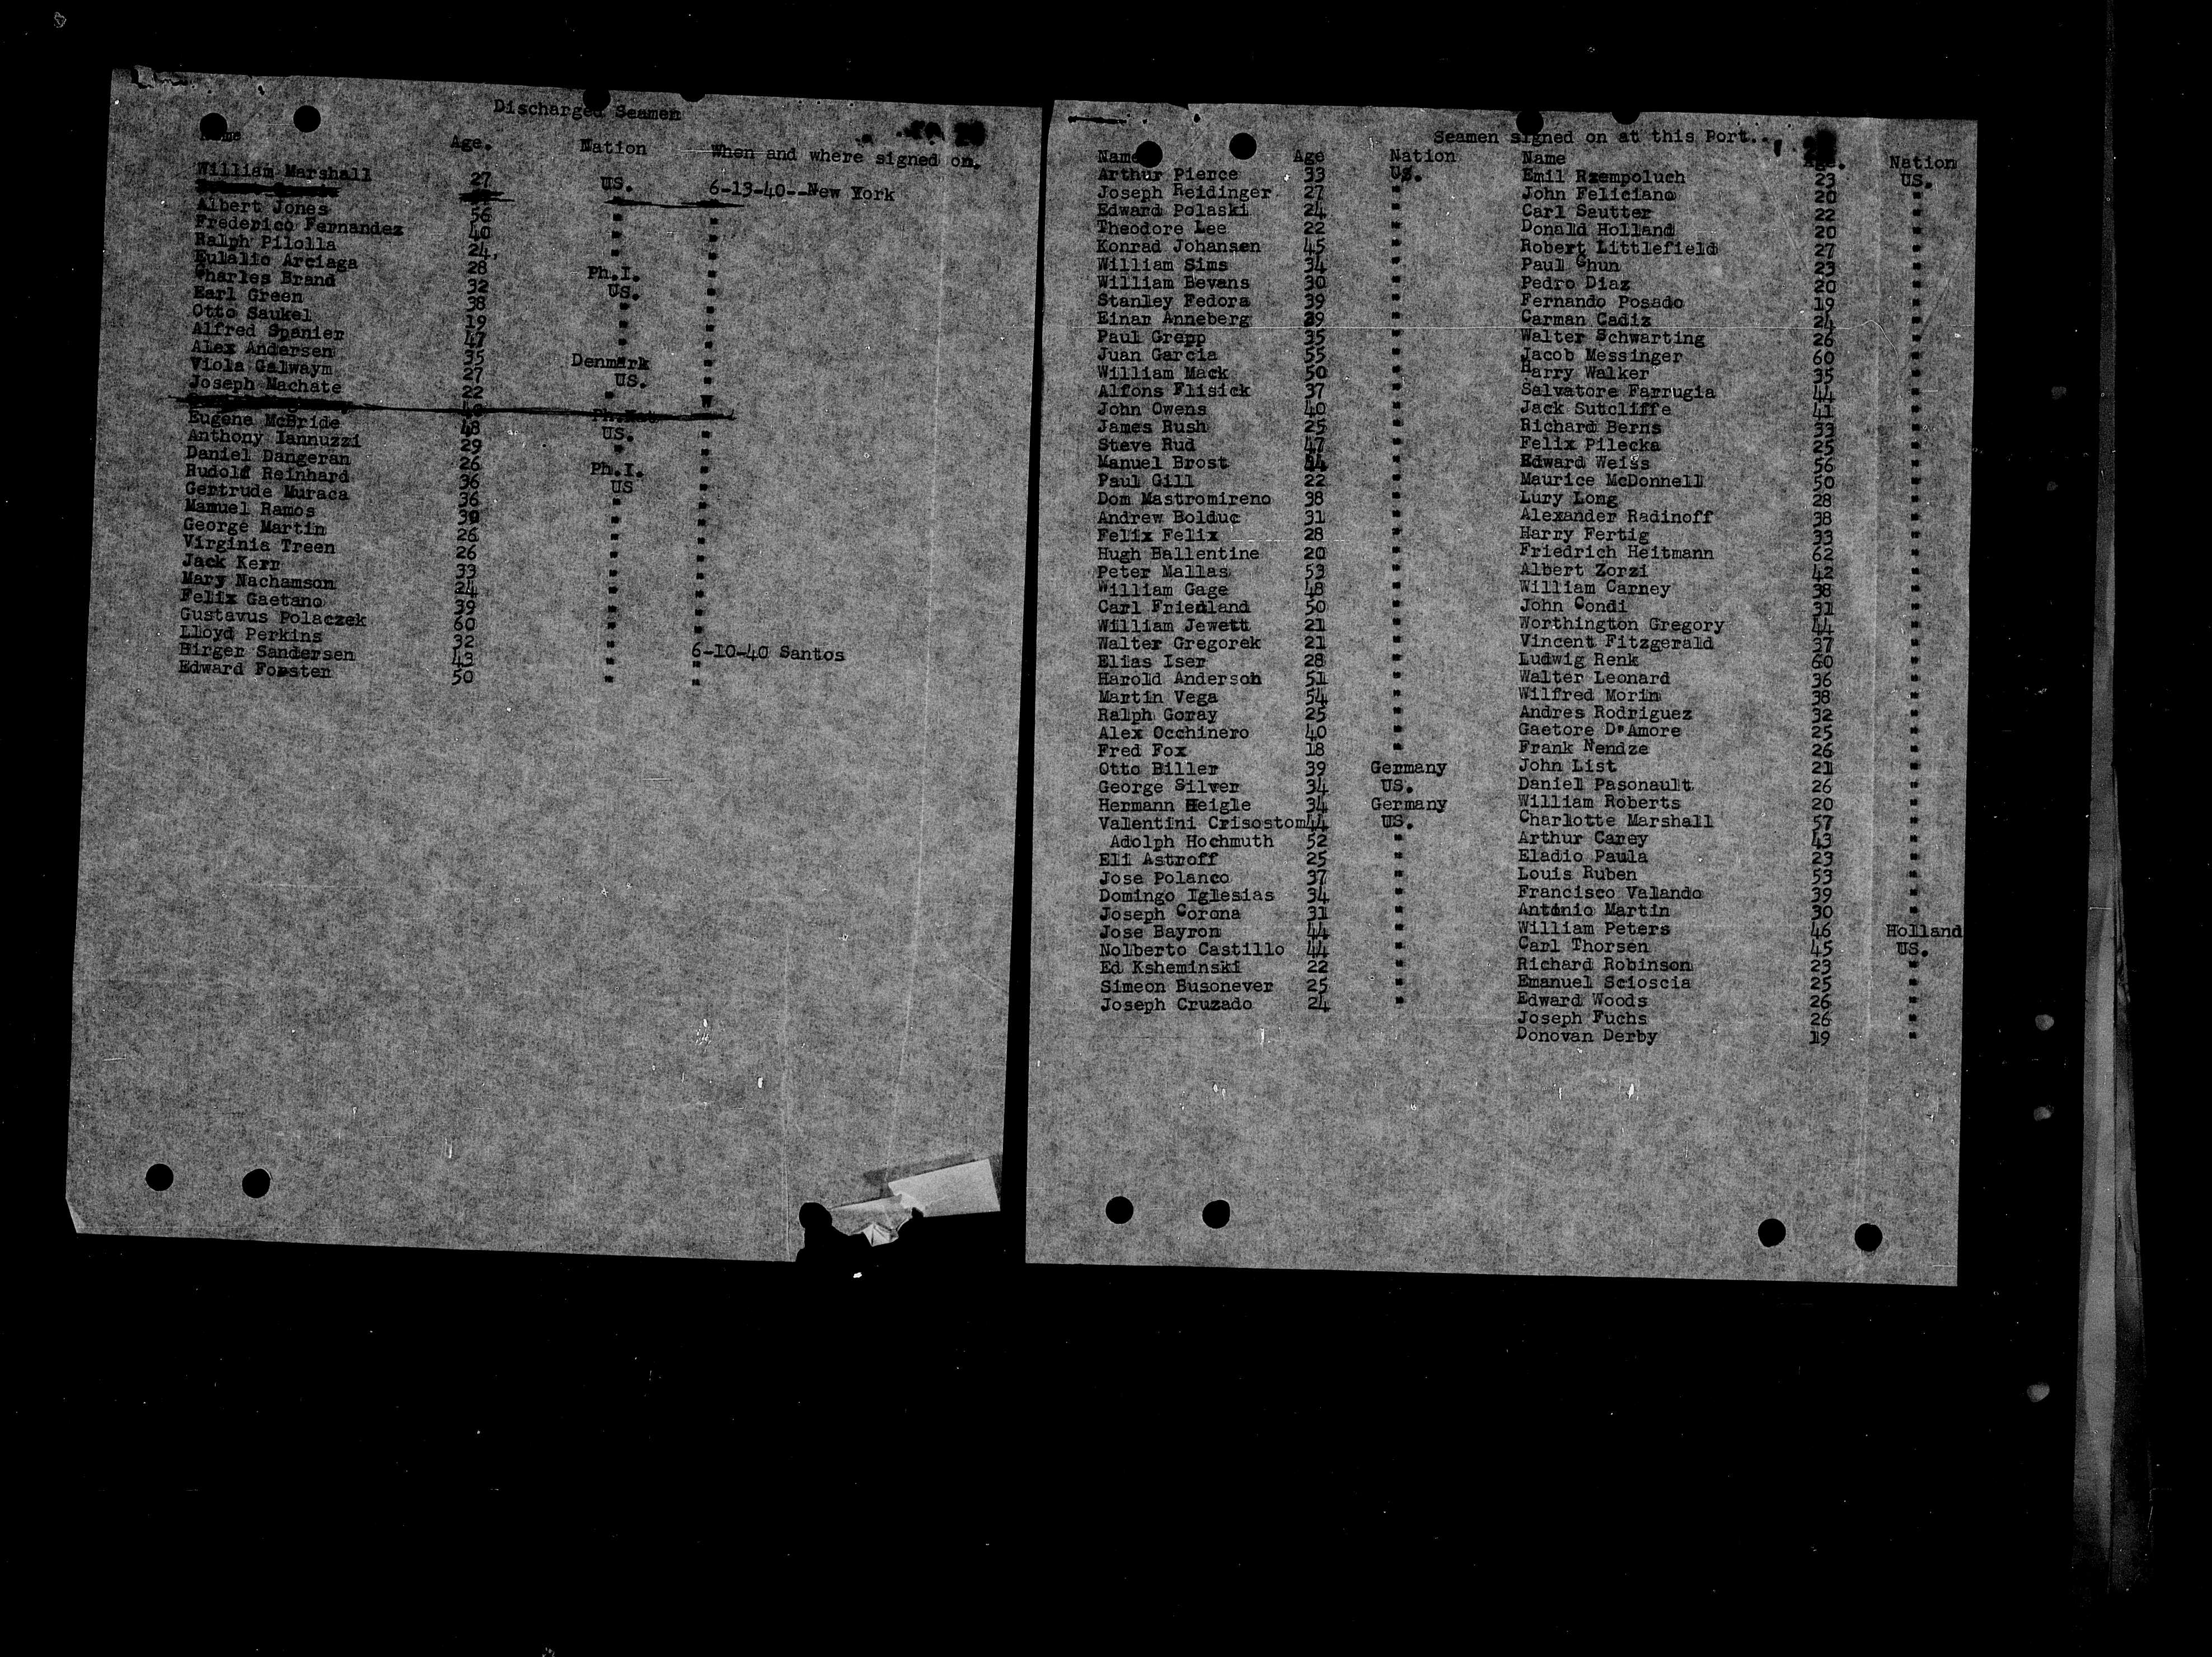 Discharged Seamen
Name Age. Nation When and where signed on.
William Marshall 27 US. 6-13-40--New York
Albert Jones 56 " "
Frederico Fernandez 40 " "
Ralph Pilolla 24, " "
Eulalio Arciaga 28 Ph.I. "
Charles Brand 32 US. "
Earl Green 38 " "
Otto Saukel 19 " "
Alfred Spanier 47 " "
Alex Andersen 35 Denmark "
Viola Galwaym 27 US. "
Joseph Machate 22 " "
Eugene McBride 48 US. "
Anthony Iannuzzi 29 " "
Daniel Dangeran 26 Ph.I. "
Rudolf Reinhard 36 US "
Gertrude Muraca 36 " "
Manuel Ramos 30 " "
George Martin 26 " "
Virginia Treen 26 " "
Jack Kerr 33 " "
Mary Nachamson 24 " "
Felix Gaetano 39 " "
Gustavus Polaczek 60 " "
Lloyd Perkins 32 " "
Birger Sandersen 43 " 6-10-40 Santos
Edward Forsten 50 " "
Seamen signed on at this Port..
Name Age Nation Name Age. Nation
Arthur Pierce 33 US. Emil Rzempoluch 23 US.
Joseph Reidinger 27 " John Feliciano 20 "
Edward Polaski 24 " Carl Sautter 22 "
Theodore Lee 22 " Donald Holland 20 "
Konrad Johansen 45 " Robert Littlefield 27 "
William Sims 34 " Paul Ghun 23 "
William Bevans 30 " Pedro Diaz 20 "
Stanley Fedora 39 " Fernando Posado 19 "
Einar Anneberg 39 " Carman Cadiz 24 "
Paul Grepp 35 " Walter Schwarting 26 "
Juan Garcia 55 " Jacob Messinger 60 "
William Mack 50 " Harry Walker 35 "
Alfons Flisick 37 " Salvatore Farrugia 44 "
John Owens 40 " Jack Sutcliffe 41 "
James Rush 25 " Richard Berns 33 "
Steve Rud 47 " Felix Pilecka 25 "
Manuel Brost 44 " Edward Weiss 56 "
Paul Gill 22 " Maurice McDonnell 50 "
Dom Mastromireno 38 " Lury Long 28 "
Andrew Bolduc 31 " Alexander Radinoff 38 "
Felix Felix 28 " Harry Fertig 33 "
Hugh Ballentine 20 " Friedrich Heitmann 62 "
Peter Mallas 53 " Albert Zorzi 42 "
William Gage 48 " William Carney 38 "
Carl Friedland 50 " John Condi 31 "
William Jewett 21 " Worthington Gregory 44 "
Walter Gregorek 21 " Vincent Fitzgerald 37 "
Elias Iser 28 " Ludwig Renk 60 "
Harold Anderson 51 " Walter Leonard 36 "
Martin Vega 54 " Wilfred Morin 38 "
Ralph Goray 25 " Andres Rodriguez 32 "
Alex Occhinero 40 " Gaetore D'Amore 25 "
Fred Fox 18 " Frank Nendze 26 "
Otto Biller 39 Germany John List 21 "
George Silver 34 US. Daniel Pasonault 26 "
Hermann Heigle 34 Germany William Roberts 20 "
Valentini Crisostom 44 US. Charlotte Marshall 57 "
Adolph Hochmuth 52 " Arthur Carey 43 "
Eli Astroff 25 " Eladio Paula 23 "
Jose Polanco 37 " Louis Ruben 53 "
Domingo Iglesias 34 " Francisco Valando 39 "
Joseph Corona 31 " Antonio Martin 30 "
Jose Bayron 44 " William Peters 46 Holland
Nolberto Castillo 44 " Carl Thorsen 45 US.
Ed Ksheminski 22 " Richard Robinson 23 "
Simeon Busonever 25 " Emanuel Scioscia 25 "
Joseph Cruzado 24 " Edward Woods 26 "
Joseph Fuchs 26 "
Donovan Derby 19 "